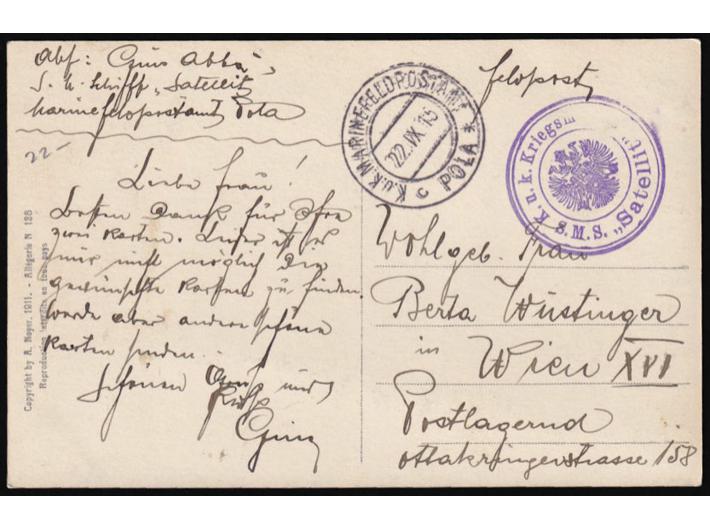 Abf: Gino Abba,
S. M. Schiff „Satellit
Marinefeldpostamt Pola
22-
Liebe Frau!
Besten Dank für Ihre
zwei Karten. Leider ist es
mir nicht möglich die
gewünschte Karten zu finden.
werde aber andere schöne
Karten senden.
Schönen Gruß und
Kuß
Gino
Feldpost
K.u.K. MARINEFELDPOSTAMT
22. IX. 15
c POLA *
K. u. k. Kriegsm
S.M.S. „Satellit"
Wohlgeb. Frau
Berta Wüstinger
in
Wien XVI
Postlagernd
Ottakringerstrasse 158
Copyright by A. Noyer, 1911. - Allégorie N 138
Reproduction interdite en tous pays